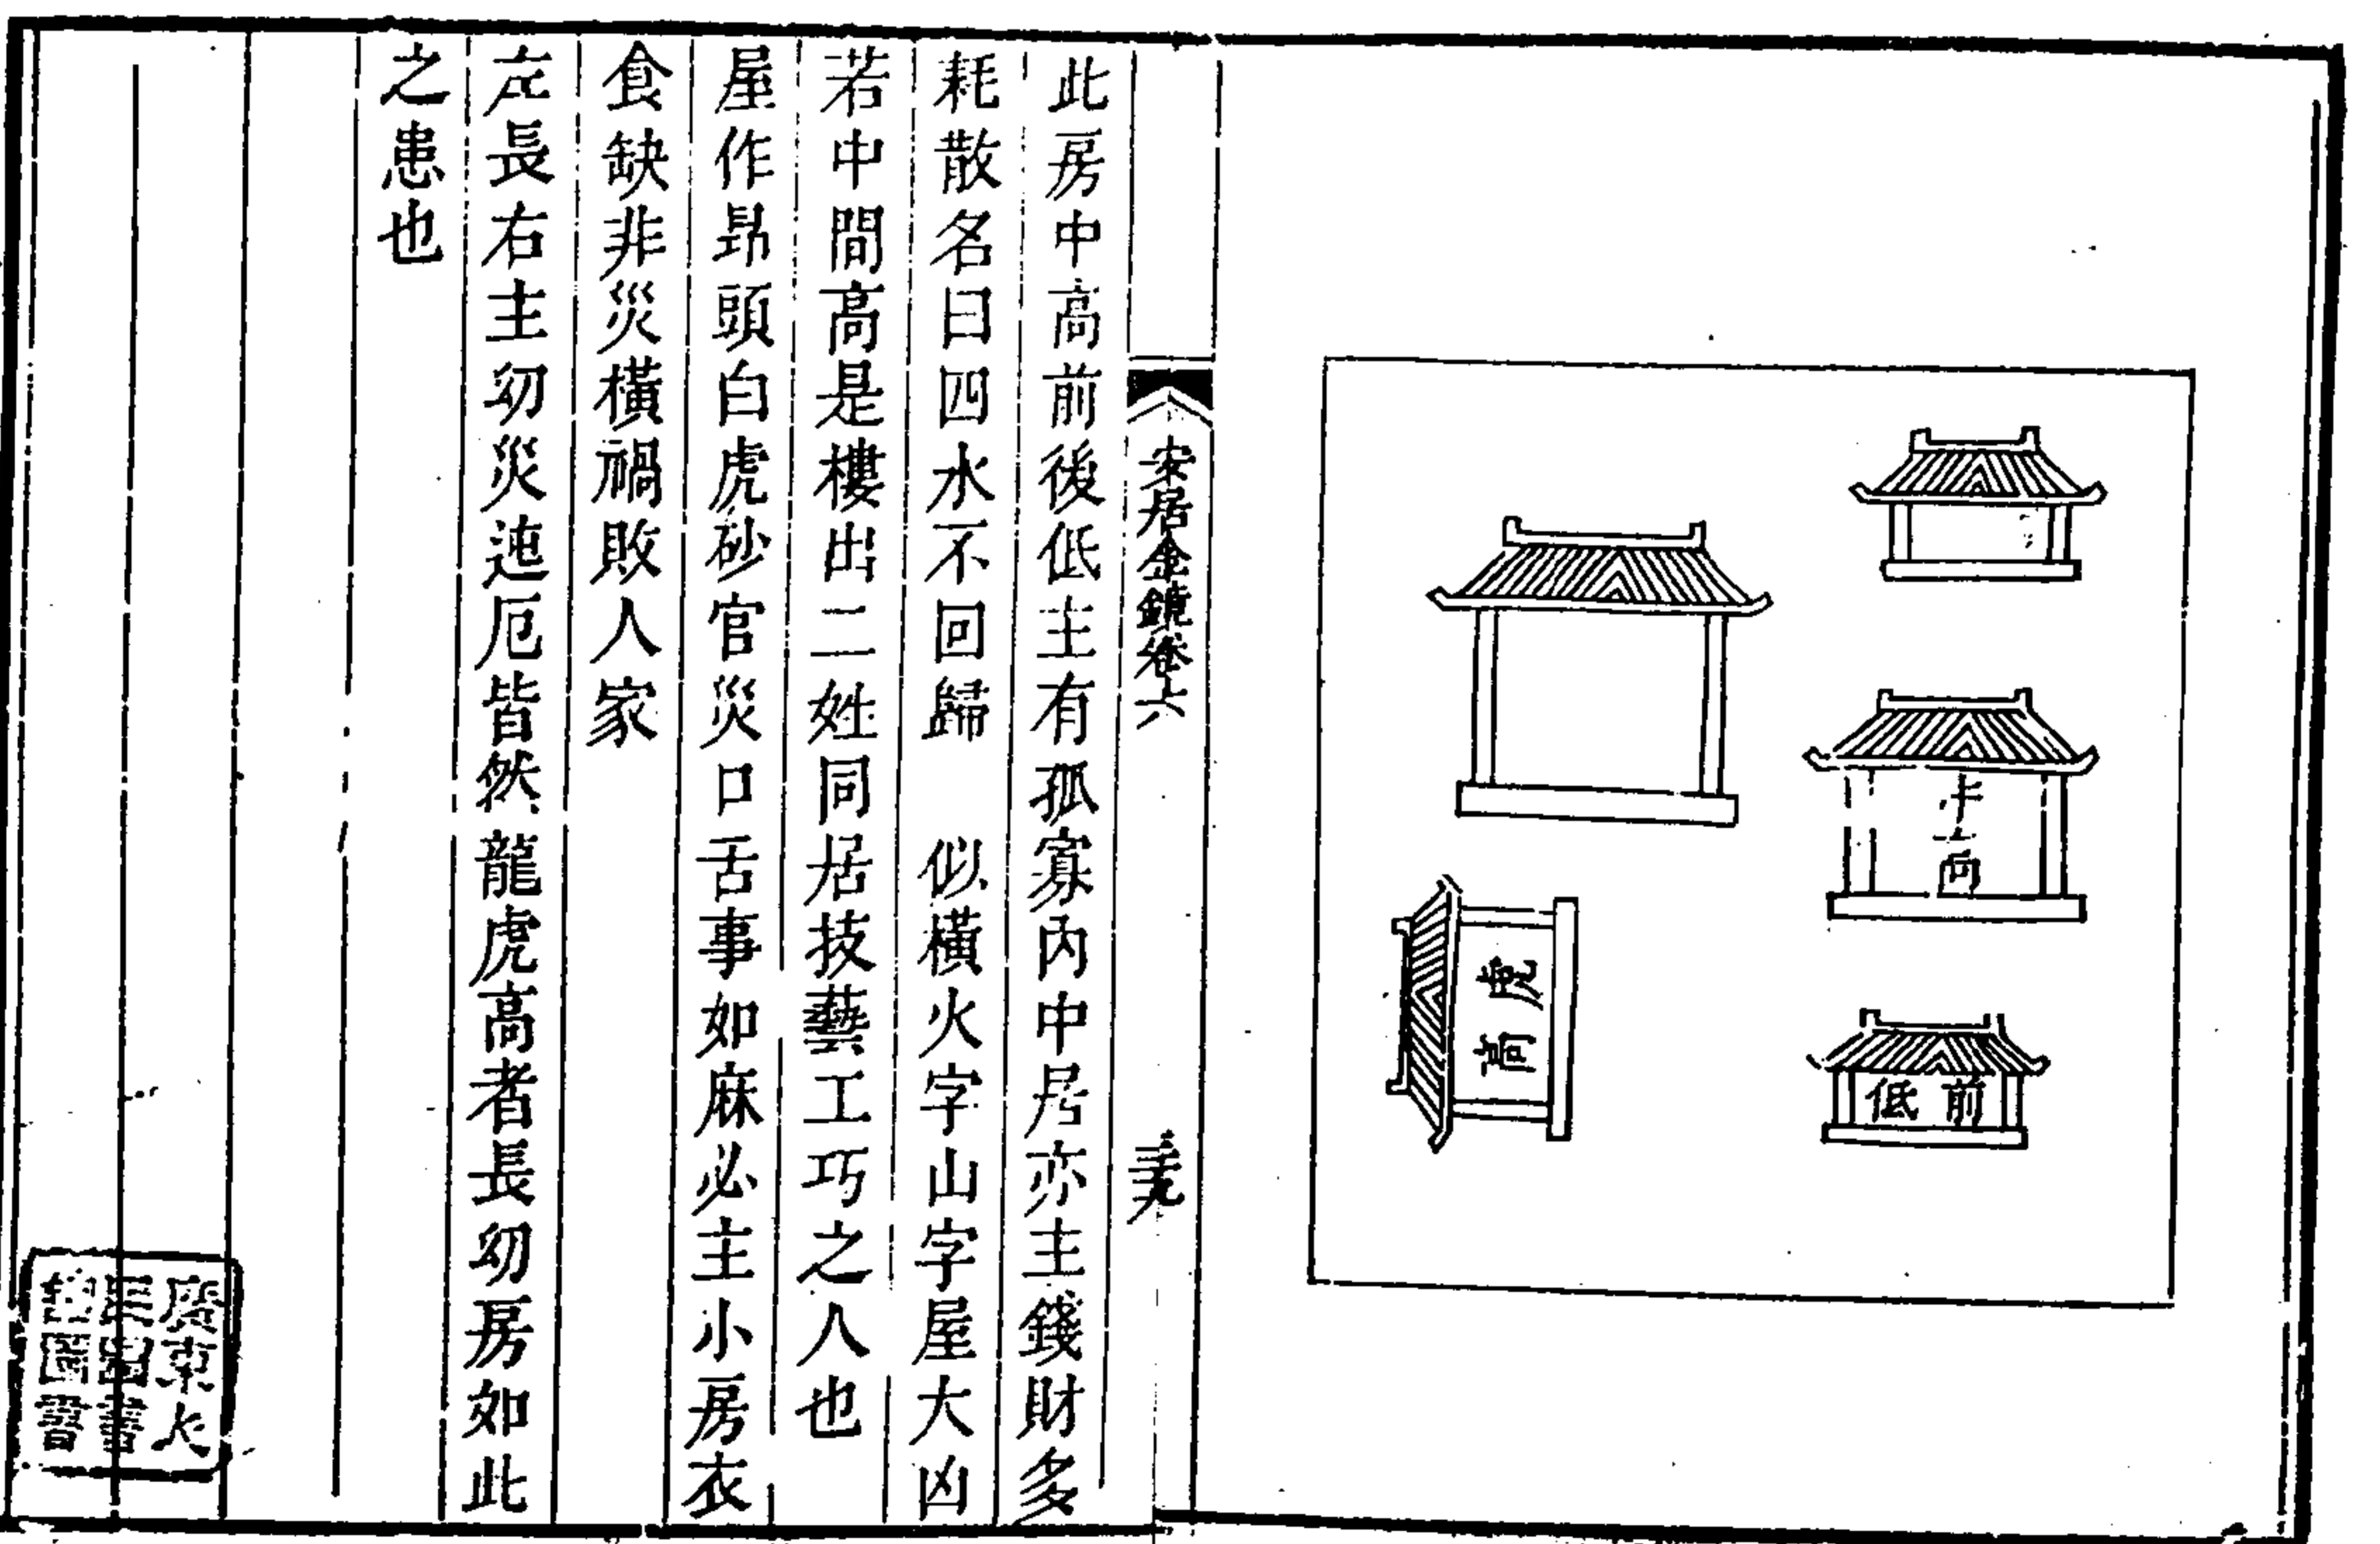 中高
前低
虎高
安居金鏡卷六
三十九
此房中高前後低主有孤寡內中居亦主錢財多
耗散名曰四水不回歸　似橫火字山字屋大凶
若中間高是樓出二姓同居技藝工巧之人也
屋作昻頭白虎砂官災口舌事如麻必主小房衣
食缺非災橫禍敗人家
左長右主幼災迍厄皆然龍虎高者長幼房如此
之患也
廣東